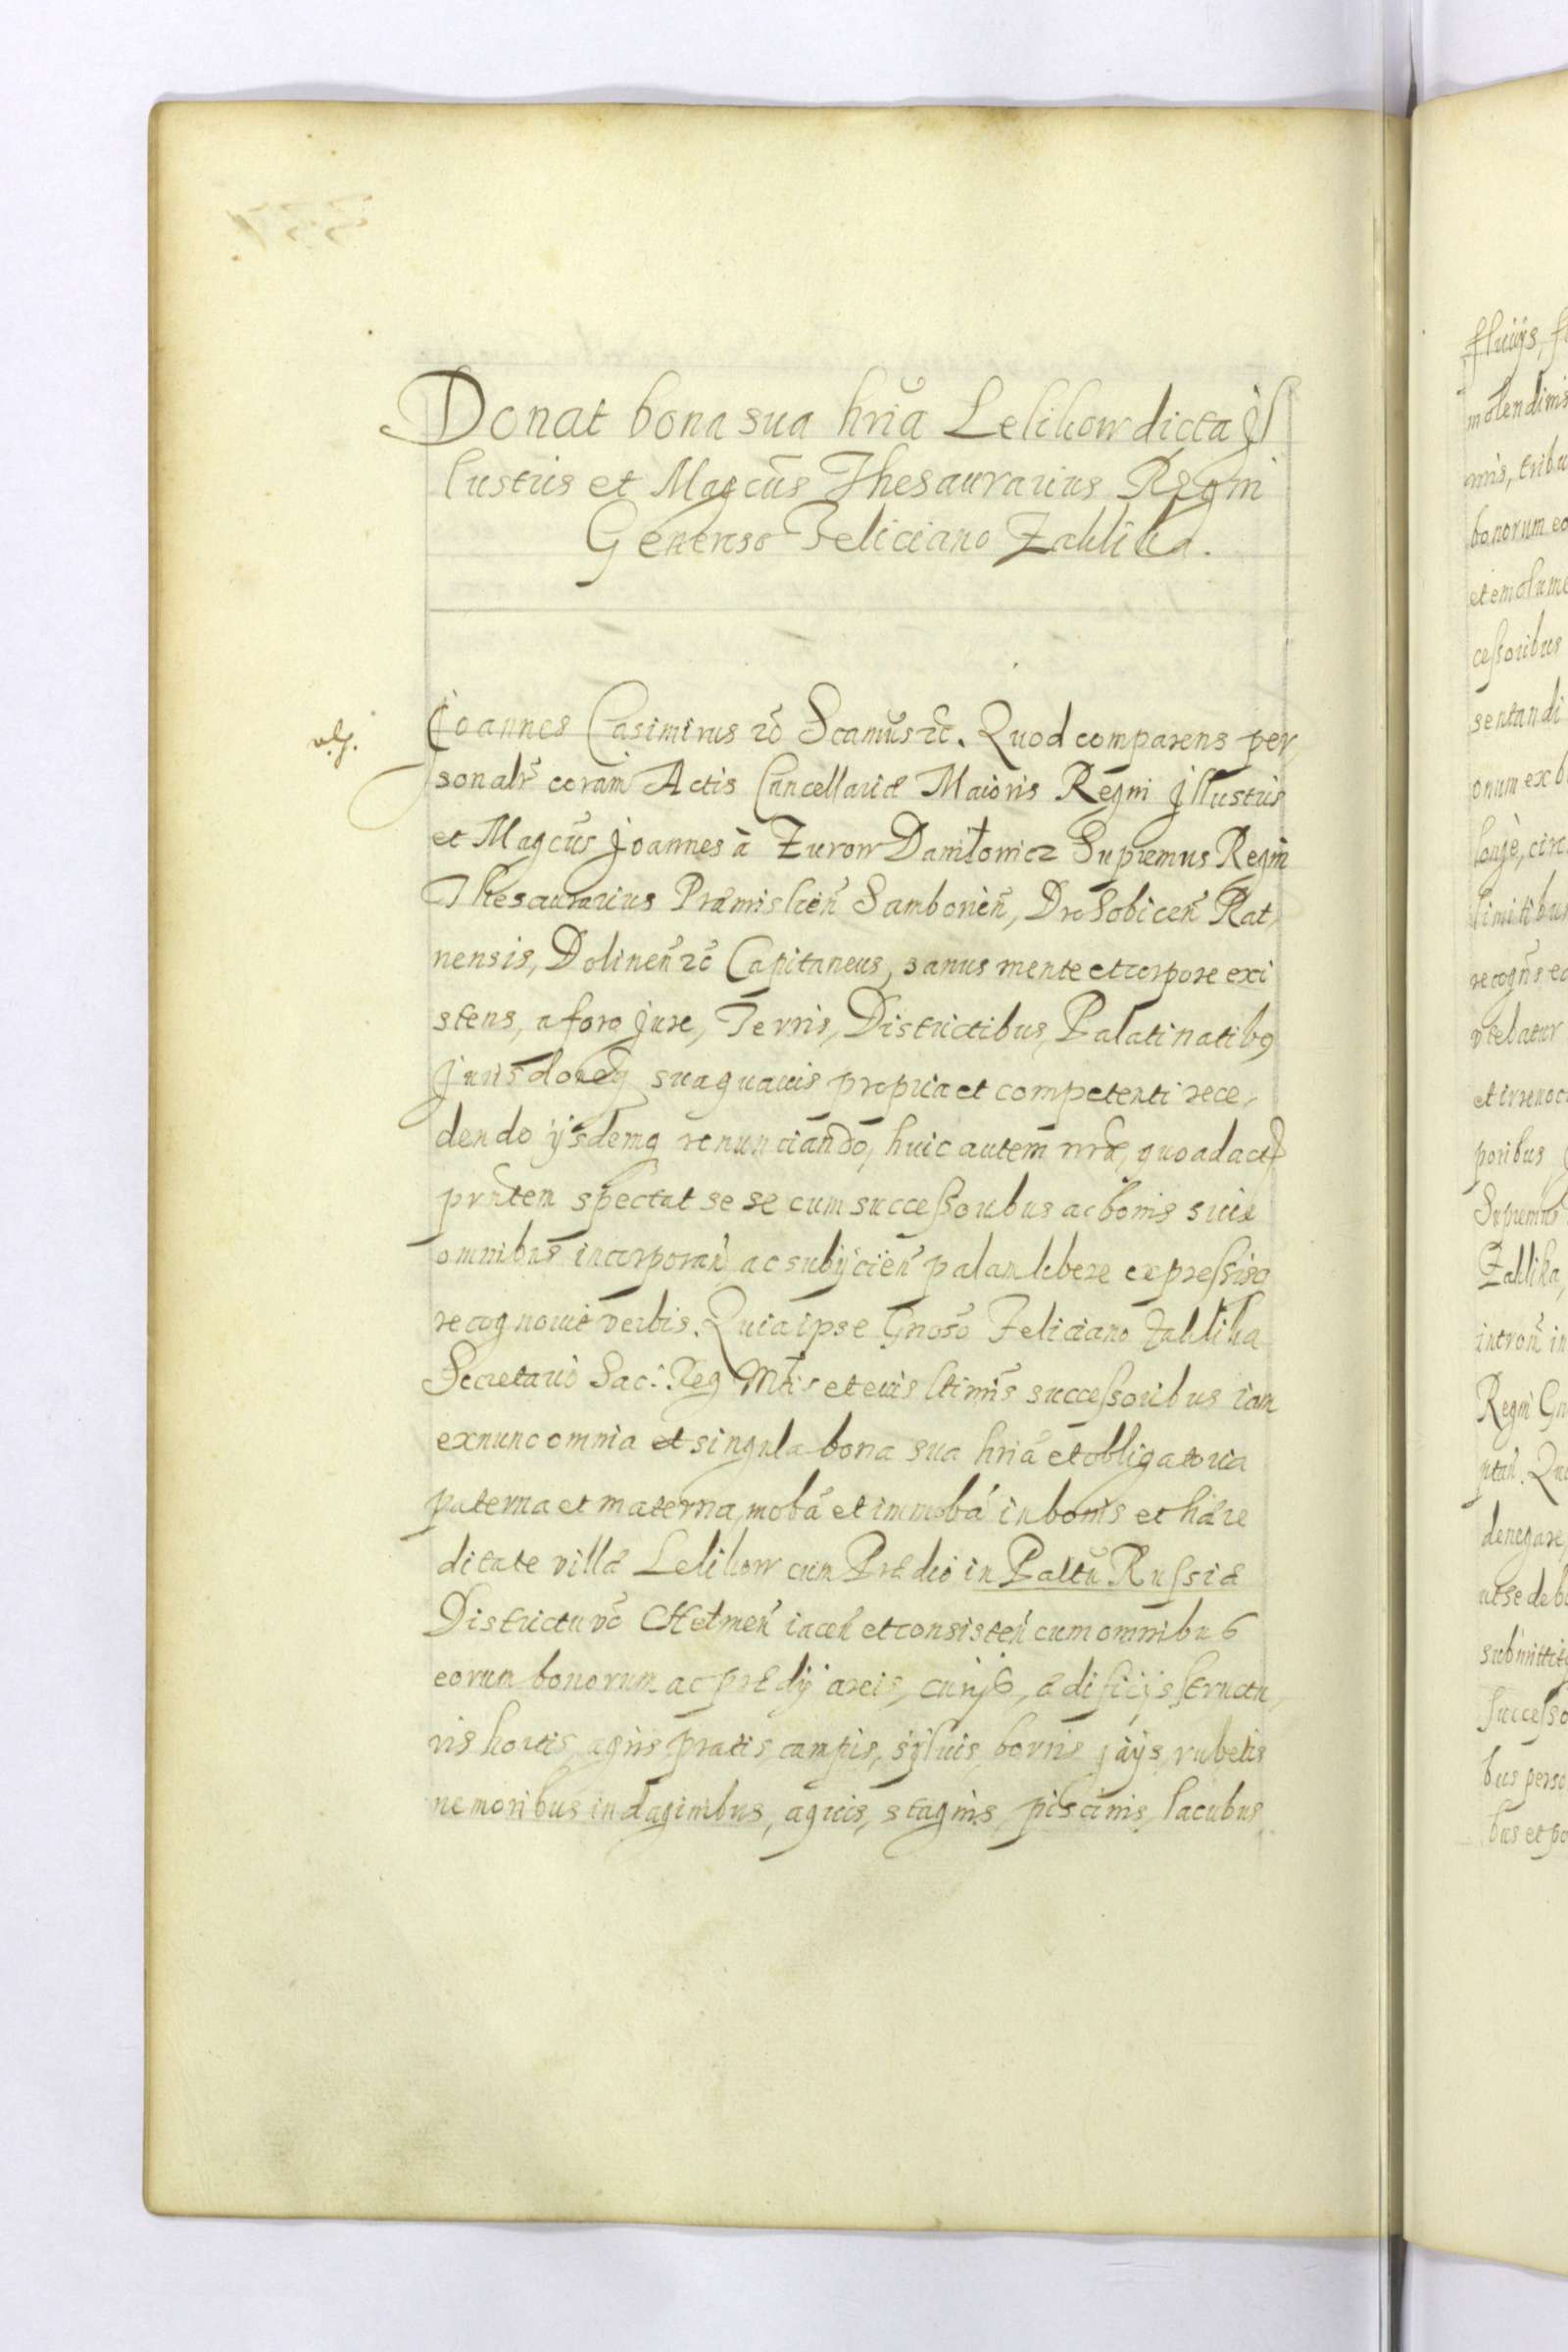 Donat bona sua hria Lelikow dicta Jl
lustris et Magcus Thesaurarius Regni
Generoso Feliciano Zaklika.
Joannes Casimirus &c Scamus &c. Quod comparens per
sonalr coram Actis Cancellariæ Maioris Regni Jllustris
et Magcus Joannes à Zurow Daniłowicz Supremus Regni
Thesaurarius Præmislien Samborien, Drohobicen Rat
nensis, Dolinen &c Capitaneus, sanus mente et corpore exi
stens, a foro Jure, Terris, Districtibus, Palatinatibq
suaquavis propria et competenti rece
dendo ijsdemq renunciando, huic autem nræ, quoad actū
prnten spectat se se cum successoribus ac bonis suis
omnibus incorporan ac subijcien palam libere expressisq
recognovit verbis. Quia ipse Gnoso Feliciano Zaklika
Secretario Sac: Reg Mtis et eius ltimis successoribus iam
exnunc omnia et singula bona sua hria et obligatoria
paterna et materna, moba et immoba in bonis et hære
ditate villæ Lelikow cum Prædio in Paltu Russiæ
Districtu vo Chełmen iacen et consisten cum omnibus
eorum bonorum ac prædij areis, curijs, ædificijs structu
ris hortis, agris pratis, campis, sylvis, borris gays, rubetis
nemoribus indaginibus, aquis, stagnis, piscinis, lacubus
fluijs,
molendinis
nris, tribu
bonorum eo
et emolume
cessoribus
sentandi
onum ex b
longè, circ
limitibus
recogns eo
vtebatur
et irrevoc
poribus
Supremus
Zaklika,
intron in
Regni Gn
ptan. Qu
denegare,
ut se deb
submittit
successo
bus perso
bus et po